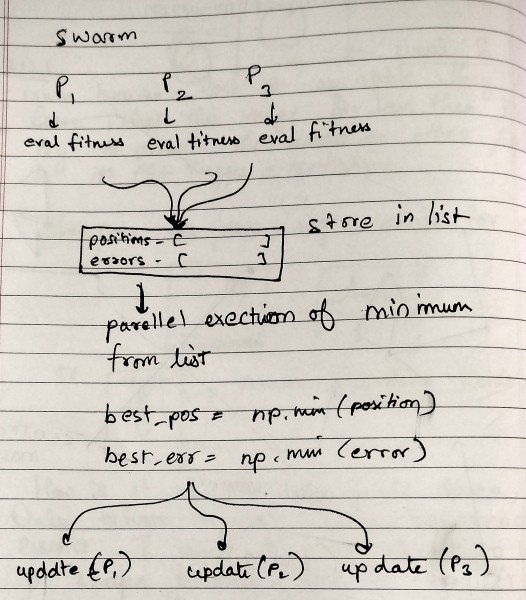 swarm
P1 P2 P3
eval fitness eval fitness eval fitness
store in list
positions - [ ]
errors - [ ]
parellel exection of minimum
from list
best_pos = np.min (position)
best_err = np.min (error)
update (P1) update (P2) update (P3)